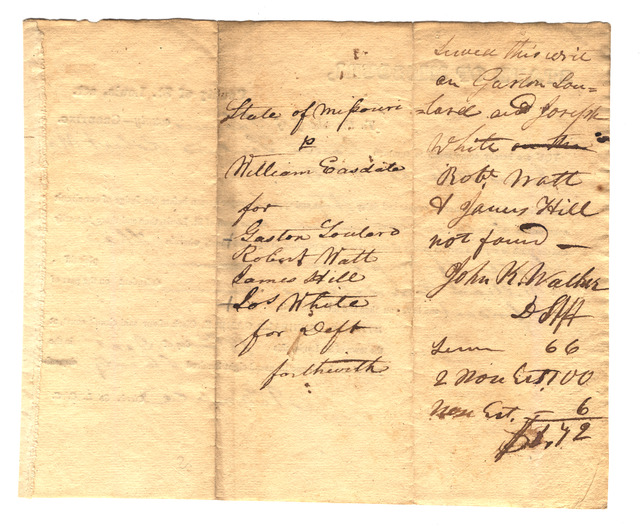 State of Missouri
William Easdale
for
Gaston Soulard
Robert Watt
James Hill
Jos White
for Deft
forthwith
Served this writ
on Gaston Sou-
lard and Joseph
White on the
Robt Watt
& James Hill
not found
John K. Walker
D Shff
Serv 66
2 Non Est. 1 00
Non Est. 6
$1,72